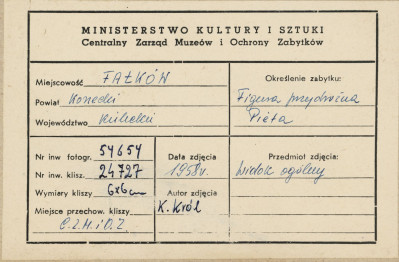 MINISTERSTWO KULTURY I SZTUKI
Centralny Zarząd Muzeów i Ochrony Zabytków
Miejscowość FAŁKÓW
Powiat Konecki
Województwo Kielecki
Określenie zabytku:
Figura przydrożna
Pieta
Nr inw fotogr. 54654
Nr inw. klisz. 24727
Wymiary kliszy 6x6cm
Miejsce przechow. kliszy
C.Z.M.iO.Z
Data zdjęcia
1958r.
Autor zdjęcia
K. Król
Przedmiot zdjęcia:
Widok ogólny